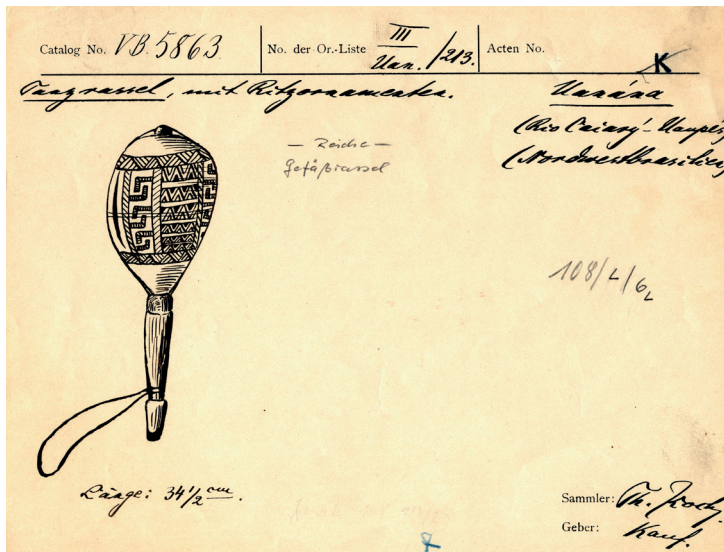 Catalog No. VB. 5863
No. der Or.-Liste III Uan./213.
Acten No.
K
Tanzrassel, mit Ritzornamenten.
Uanána
(Rio Caiarý-Uaupés
(Nordwestbrasilien
Gefäßrassel
108/L/6L
Länge: 34 1/2 cm.
Sammler: Th. Koch.
Geber: Kauf.